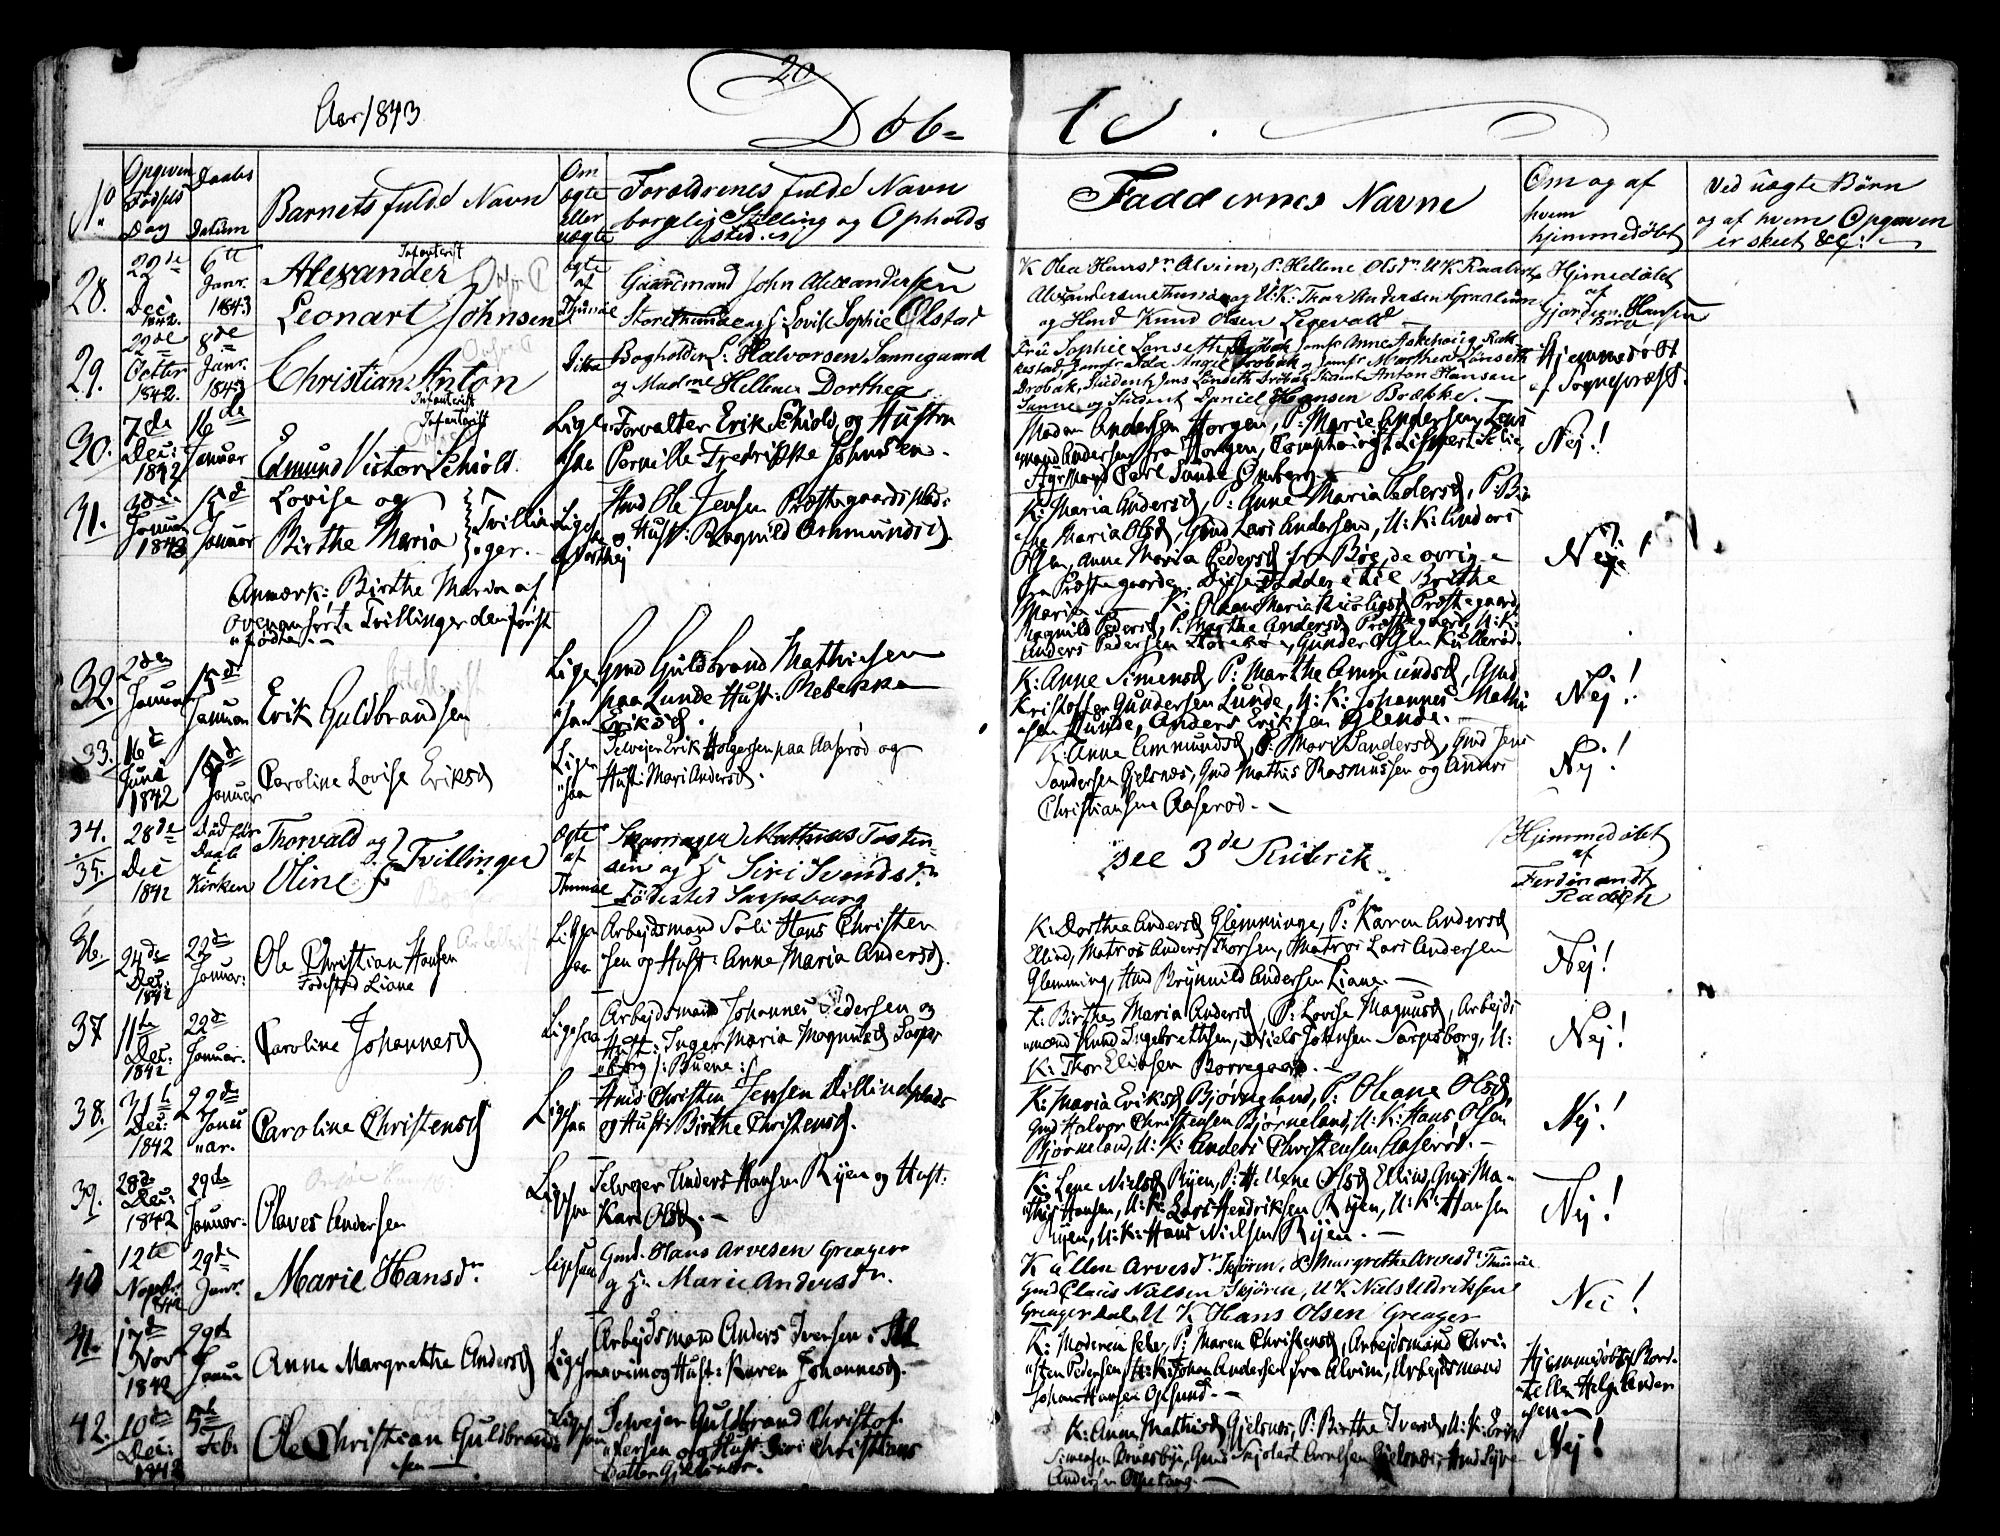 20
Aar 1843
Døb= te.
No.
Opgiven Fødsels Dag
Daabs Datum
Barnets fulde Navn
Om ægte eller uægte
Forældrenes fulde Navn
borgelig Stilling og Opholds
sted.
Faddernes Navne
Om og af
hvem
hjemmedøbt
Ved uægte Børn
og af hvem Opgaven
er skeet &c:
28.
22de
Dec
1842.
6te
Janr.
1843
Alexander
Leonart Johnsen
ægte
af
Thunøe
Gaardmand John Alexandersen
Storethune og H: Lovise Sophie Olstad
K Olea Hansdr Alvim, P: Hellene Olsdr
og U: K: Thor Andersen Graalum
og Hmd Knud Olsen Legevald
Hjmedøbt
af
Gjordem. Hansen
Borg
29.
22de
Octbr
1842.
8de
Janr.
1843
Christian Anton
Ditto
Bogholder L: Halvorsen Sannegaard
og Madme Hellene Dorthea
Frue Sophie Lonseth Drøbak Jomfr Anne
Jomfr Ida Drøbak, Jomfr Marthea Lonseth
Drøbak, Student Jens Lonseth Drøbak Anton Hansen
Sanne og Student Daniel Hansen Brække.
Hjemmedøbt
af Sognepræst.
30.
7de
Dec:
1842
16de
Januar
Edmund Victor Schiold.
Lige
saa
Forvalter Erik Schiold, og Hustru
Pernille Fredrikke Johnsen.
Madam Andersen Horgen, P: Marie Andersen, Jens
Andersen fra Horgen,
Carl Sande
Nej!
31.
3die
Januar
1843
15d
Januar
Lovise og
Birthe Maria
Tvillin
ger.
Ligesaa
Hmd Ole Jensen Præstegaards plads
og Hust: Ragnild Asmundsd.
K: Maria Andersd, P: Anne Maria Pedersd, P: Bir
the Maria Olsd, Gmd Lars Andersen, U: K: Anders
Olsen, Anne Maria Pedersd fra Bøe, de øvrige
fra Præstegaarden. Disse Faddere til Birthe
Maria. K: Oleane Maria Nicolaisd Præstegaard,
Magnild Pedersd, P: Marthe Andersd Præstegaard, U: K:
Anders Pedersen Torebøe, Gunder Olsen Kullerød.
Nej!
Anmærk: Birthe Maria af
ovenanførte Tvillinger den først
fødte.
32.
2den
Januar
15d
Januar
Erik Guldbrandsen
Lige
saa
Gmd Guldbrand Mathiesen
paa Lunde Hust: Rebekka
Eriksd.
K: Anne Simensd, P: Marthe Ammundsd, Gmd
Kristoffer Gundersen Lunde, U: K: Johannes Mathi
sen Lunde, Anders Eriksen Glende.
Nej!
33.
16d
Juni
1842
15de
Januar
Caroline Lovise Eriksd
Lige
saa
Selvejer Erik Holgersen paa Aaserød og
Hust: Mari Andersd.
K: Anne Ammundsd, P: Mari Sandersd, Gmd Jens
Sandersen Gjelsnæs, Gmd Mathis Rasmussen og Anders
Christiansen Aaserød.
Nej!
34.
35.
28de
Dec
1842
Død før
Daab
i
Kirken
Thorvald og
Oline
Tvillinger
Ægte
af
Thunøe
Skomager Mathias Tosten
sen og H Siri Svendsdr
Fødested Sarpsborg
See 3de Rubrik
Hjemmedøbt
af
Ferdinandt
36.
24de
Dec:
1842
22de
Januar:
Ole Christian Hansen
Fødested Liane
Lige
saa
Arbejdsmand Soli Hans Christen
sen og Hust: Anne Maria Andersd.
K: Dorthea Andersd Glemminge, P: Karen Andersd
Ellind, Matros Anders Thorsen, Matros Lars Andersen
Glemming, Hmd Brynnild Andersen Liane.
Nej!
37
11te
Dec:
1842
22de
Januar.
Caroline Johannesd
Ligesaa
Arbejdsmand Johannes Pedersen og
Hust: Inger Maria Magnusd Sarps
borg /: Buene :/
K: Birthes Maria Andersd, P: Lovise Magnusd, Arbejds
mænd Knud Ingebrethsen, Niels Johnsen Sarpsborg, U:
K: Thor Eliasen Borregaard.
Nej!
38.
31te
Dec:
1842
29de
Janu
ar.
Caroline Christensd
Ligesaa
Hmd Christen Jensen Dillindplads
og Hust: Birthe Christensd.
K: Maria Eriksd Bjørneland, P: Oleane Olsd
Gmd Halvor Christensen Bjørneland, U: K: Hans Olsen
Bjørneland, U: K: Anders Christensen Aaserød.
Nej!
39.
28de
Dec:
1842
29de
Januar.
Olaves Andersen
Ligesaa
Selvejer Anders Hansen Ryen og Hust:
Kari Olsd.
K: Lene Nielsd Ryen, P: Hellene Olsd Ellind, Gmd Ma
this Hansen, U: K: Lars Hendriksen Ryen, U: K: Hansen
Ryen, U: K: Hans Nielsen Ryen.
Nej!
40
12te
Novbr.
1842
29de
Janr.
Marie Hansdr.
Ligesaa
Gmd. Hans Arvesen Greager
og Hu Marie Andersdr.
K Ellen Arvesdr Skjøren, P Margrethe Arvesdr Thunøe
Gmd Claus Nielsen Skjøren, U K Niels Uldriksen
Greagerdal, U K Hans Olsen Greager
Nei!
41.
17de
Nov
1842
29de
Janua
Anne Margrethe Andersd
Ligesaa
Arbejdsmand Anders Iversen i Al
vim og Hust: Karen Johannesd.
K: Moderen selv, P: Maren Christensd, Arbejdsmænd Chri
sten Pedersen, U: K: Johan Andersen fra Alvim, Arbejdsmand
Johan Hansen Opsund.
Hjemmedøbt Bord
Helge Ander
sen
42.
10de
Dec:
1842
5te
Feb:
Ole Christian Guldbrand
sen
Ligesaa
Selvejer Guldbrand Christof
fersen og Hust: Siri Christians
Datter
K: Anne Mathisd Gjelsnæs, P: Birthe Iversd, U: K: Erik
Simensen
Andersen
Nej!